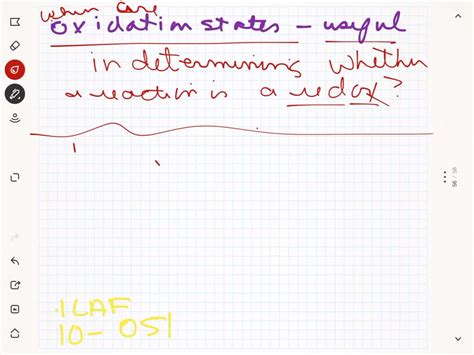 when are
oxidation states - useful
in determining whether
a reaction is a redox?
ILAF
10-051